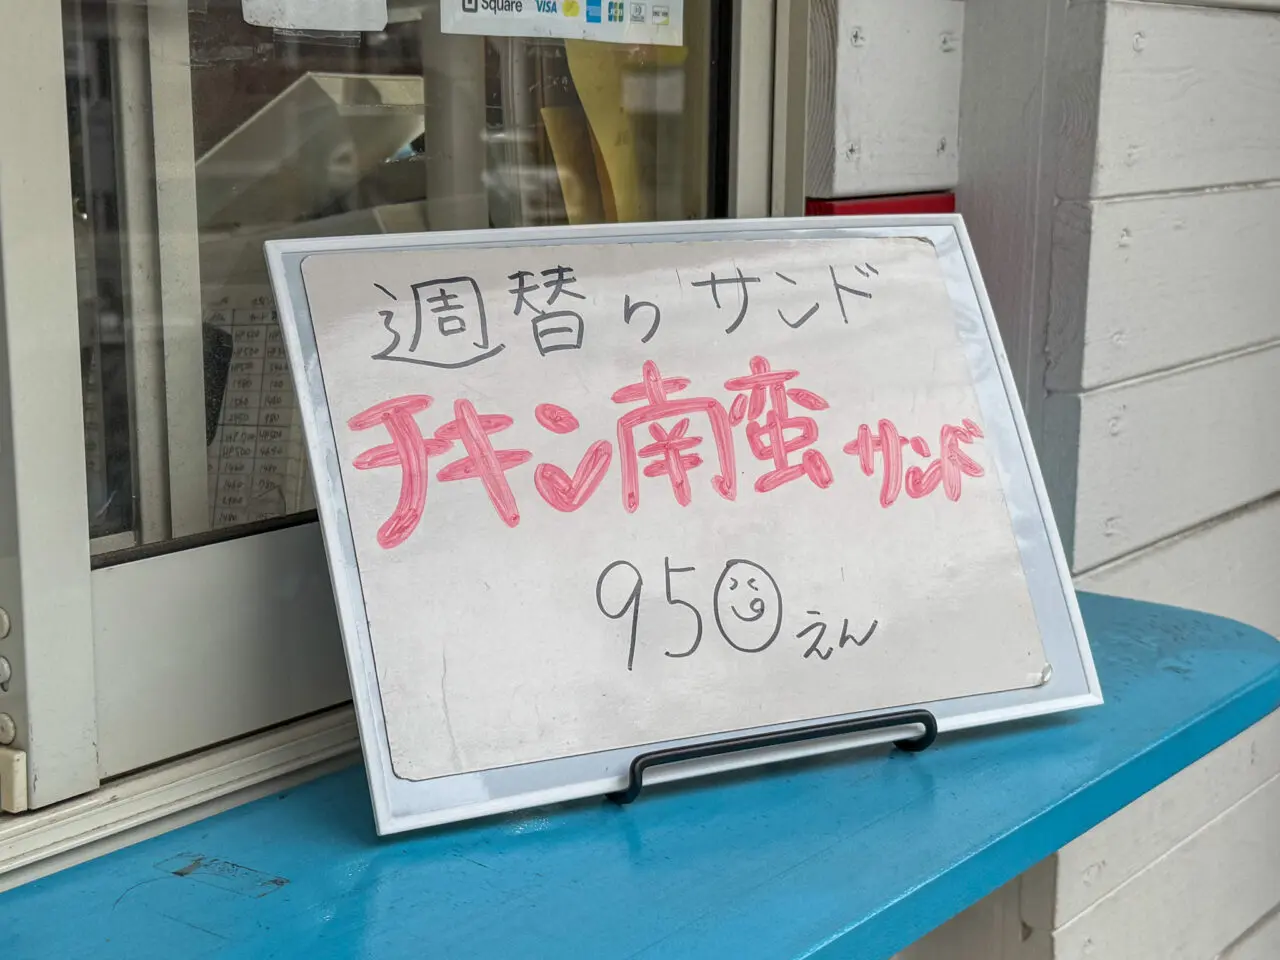 Square VISA JCB
週替りサンド
チキン南蛮サンド
950えん